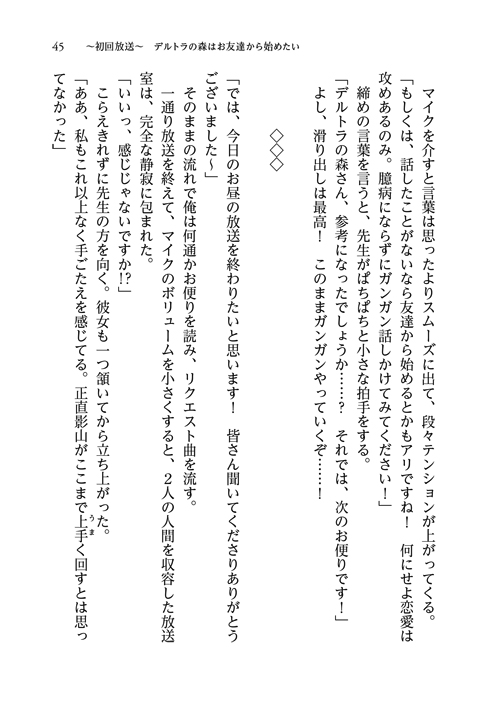 45　〜初回放送〜　デルトラの森はお友達から始めたい
マイクを介すと言葉は思ったよりスムーズに出て、段々テンションが上がってくる。
「もしくは、話したことがないなら友達から始めるとかもアリですね！　何にせよ恋愛は
攻めあるのみ。臆病にならずにガンガン話しかけてみてください！」
締めの言葉を言うと、先生がぱちぱちと小さな拍手をする。
「デルトラの森さん、参考になったでしょうか……？　それでは、次のお便りです！」
よし、滑り出しは最高！　このままガンガンやっていくぞ……！
◇◇◇
「では、今日のお昼の放送を終わりたいと思います！　皆さん聞いてくださりありがとう
ございました〜」
そのままの流れで俺は何通かお便りを読み、リクエスト曲を流す。
一通り放送を終えて、マイクのボリュームを小さくすると、２人の人間を収容した放送
室は、完全な静寂に包まれた。
「いいっ、感じじゃないですか!?」
こらえきれずに先生の方を向く。彼女も一つ頷いてから立ち上がった。
「ああ、私もこれ以上なく手ごたえを感じてる。正直影山がここまで上手く回すとは思っ
うま
てなかった」